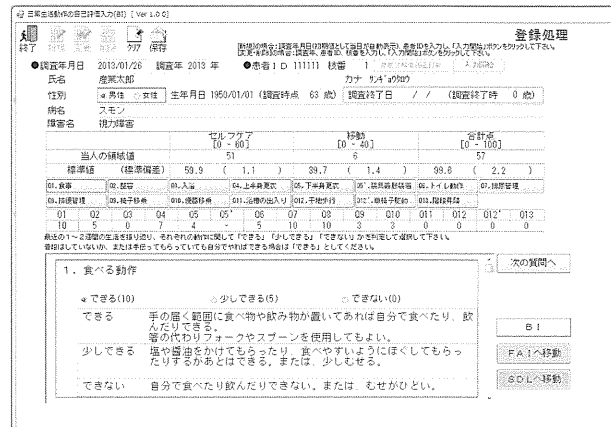 日常生活動作の自己評価入力(BI) [Ver 1.0.0]
終了 クリア 保存
登録処理
[新規]の場合:調査年月日(初期値として当日が自動表示)、患者IDを入力し、「入力開始」ボタンをクリックして下さい。
[変更・削除]の場合:調査年、患者ID、枝番を入力し、「入力開始」ボタンをクリックして下さい。
●調査年月日 2013/01/26 調査年 2013 年 ●患者ID 111111 枝番 1 入力開始
氏名 産業太郎 カナ サンギョウタロウ
性別 男性 女性 生年月日 1950/01/01 (調査時点 63 歳) 調査終了日 / / (調査終了時 0 歳)
病名 スモン
障害名 視力障害
セルフケア 移動 合計点
[0 - 60] [0 - 40] [0 - 100]
当人の領域値 51 6 57
標準値 (標準偏差) 59.9 ( 1.1 ) 39.7 ( 1.4 ) 99.6 ( 2.2 )
01.食事 02.整容 03.入浴 04.上半身更衣 05.下半身更衣 05'.装具義肢装着 06.トイレ動作 07.排尿管理
08.排便管理 09.椅子移乗 010.便器移乗 011.浴槽の出入り 012.平地歩行 012'.車椅子駆動 013.階段昇降
01 02 03 04 05 05' 06 07 08 09 010 011 012 012' 013
10 5 0 7 4 - 5 10 10 3 3 0 0 0 0
最近の1～2週間の生活を振り返り、それぞれの動作に関して「できる」「少しできる」「できない」かを判定して選択して下さい。
普段はしていないが、または手伝ってもらっていても自分でやればできる場合は「できる」としてください。
1. 食べる動作 次の質問へ
できる(10) 少しできる(5) できない(0)
できる 手の届く範囲に食べ物や飲み物が置いてあれば自分で食べたり、飲
んだりできる。
箸の代わりフォークやスプーンを使用してもよい。
BI
少しできる 塩や醤油をかけてもらったり、食べやすいようにほぐしてもらっ
たりするがあとはできる。または、少しむせる。
FAIへ移動
できない 自分で食べたり飲んだりできない。または、むせがひどい。
SDLへ移動